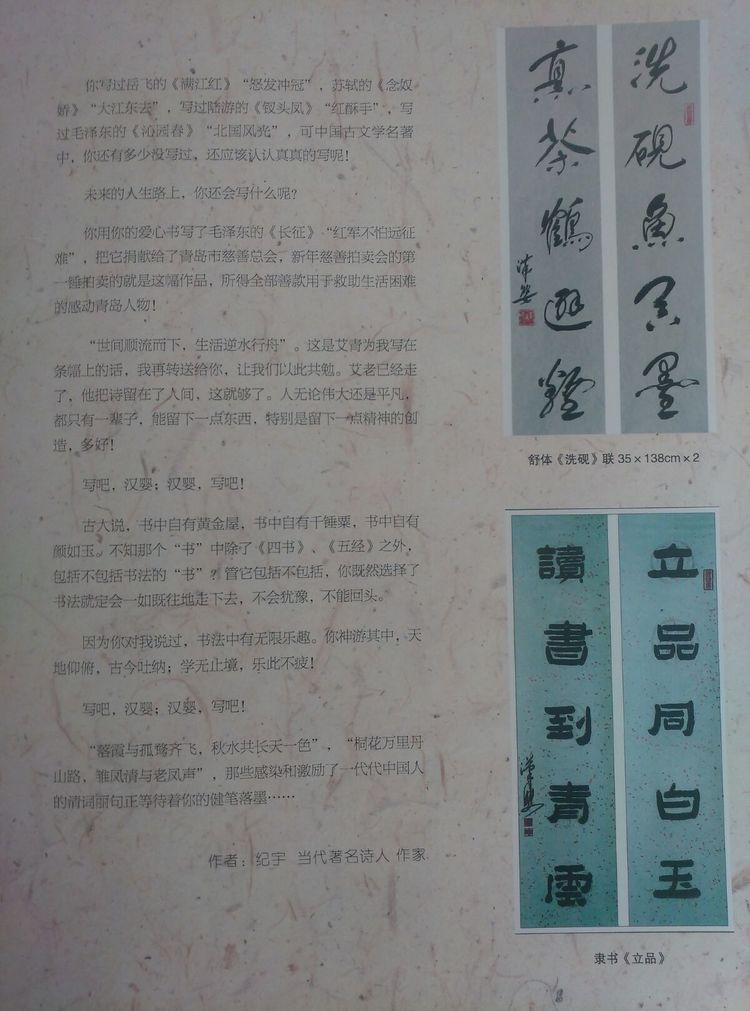 你写过岳飞的《满江红》“怒发冲冠”，苏轼的《念奴
娇》“大江东去”，写过陆游的《钗头凤》“红酥手”，写
过毛泽东的《沁园春》“北国风光”，可中国古文学名著
中，你还有多少没写过，还应该认认真真的写呢！
未来的人生路上，你还会写什么呢？
你用你的爱心书写了毛泽东的《长征》“红军不怕远征
难”，把它捐献给了青岛市慈善总会，新年慈善拍卖会的第
一锤拍卖的就是这幅作品，所得全部善款用于救助生活困难
的感动青岛人物！
“世间顺流而下，生活逆水行舟”。这是艾青为我写在
条幅上的话，我再转送给你，让我们以此共勉。艾老已经走
了，他把诗留在了人间，这就够了。人无论伟大还是平凡，
都只有一辈子，能留下一点东西，特别是留下一点精神的创
造，多好！
写吧，汉婴；汉婴，写吧！
古人说，书中自有黄金屋，书中自有千锺粟，书中自有
颜如玉。不知那个“书”中除了《四书》、《五经》之外，
包括不包括书法的“书”？管它包括不包括，你既然选择了
书法就定会一如既往地走下去，不会犹豫，不能回头。
因为你对我说过，书法中有无限乐趣。你神游其中，天
地仰俯，古今吐纳；学无止境，乐此不疲！
写吧，汉婴；汉婴，写吧！
“落霞与孤鹜齐飞，秋水共长天一色”，“桐花万里丹
山路，雏凤清与老凤声”，那些感染和激励了一代代中国人
的清词丽句正等待着你的健笔落墨……
作者：纪宇 当代著名诗人 作家
洗硯魚吞墨
烹茶鶴避煙
汉婴
舒体《洗砚》联 35×138cm×2
立品同白玉
讀書到青雲
漢嬰
隶书《立品》